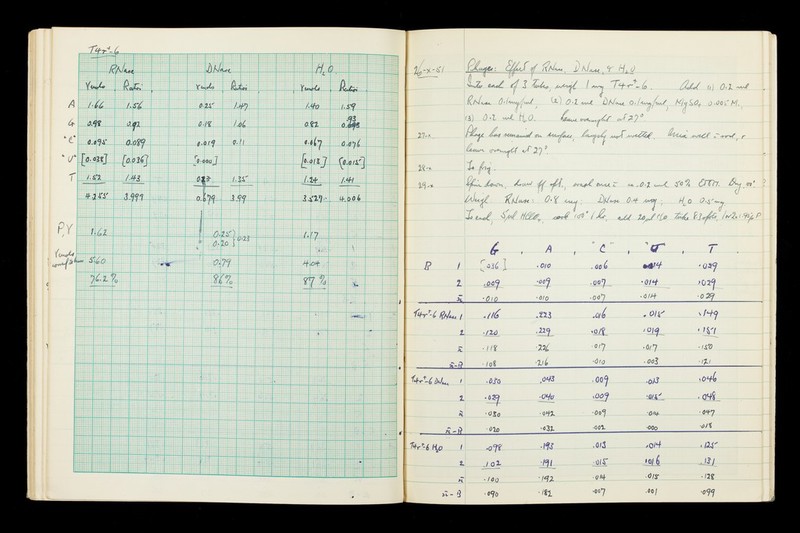 T4r⁺-6
RNase DNase H₂O
Yumoles Ratio Yumoles Ratio Yumoles Ratio
A 1.66 1.56 0.25 1.47 1.40 1.59
G 0.98 0.92 0.18 1.06 0.82 .93
"C" 0.095 0.089 0.019 0.11 0.067 0.076
"U" [0.028] [0.026] [0.000] [0.013] [0.015]
T 1.52 1.43 1.35 1.24 1.41
4.255 3.999 0.679 3.99 3.527 4.006
P,Y 1.62 0.25 0.20 0.23 1.17
5.60 0.79 4.04
76.2% 86% 87%
26-x-51 Phages: Effect of RNase, DNase, & H₂O
Into each of 3 tubes, weigh 1 mg T4r⁺-6. Add (1) 0.2 ml
RNase 0.1mg/ml, (2) 0.2 ml DNase 0.1mg/ml, MgSO₄ 0.005 M,
(3) 0.2 ml H₂O. Leave overnight at 27°
27-x Phage has remained on surface, largely not wetted.
leave overnight at 27°
28-x To frig.
29-x Spin down,
Weigh RNase: 0.8 mg; DNase 0.4 mg; H₂O 0.5 mg
G A "C" "U" T
B 1 [.036] .010 .006 .014 .029
2 .009 .009 .007 .014 .029
x̄ .010 .010 .007 .014 .029
T4r⁺-6 RNase 1 .116 .223 .016 .015 .149
2 .120 .229 .018 .019 .151
x̄ .118 .226 .017 .017 .150
x̄-B .108 .216 .010 .003 .121
T4r⁺-6 DNase 1 .030 .043 .009 .013 .046
2 .029 .040 .009 .015 .048
x̄ .030 .042 .009 .014 .047
x̄-B .020 .032 .002 .000 .018
T4r⁺-6 H₂O 1 .098 .193 .013 .014 .125
2 .102 .191 .015 .016 .131
x̄ .100 .192 .014 .015 .128
x̄-B .090 .182 .007 .001 .099